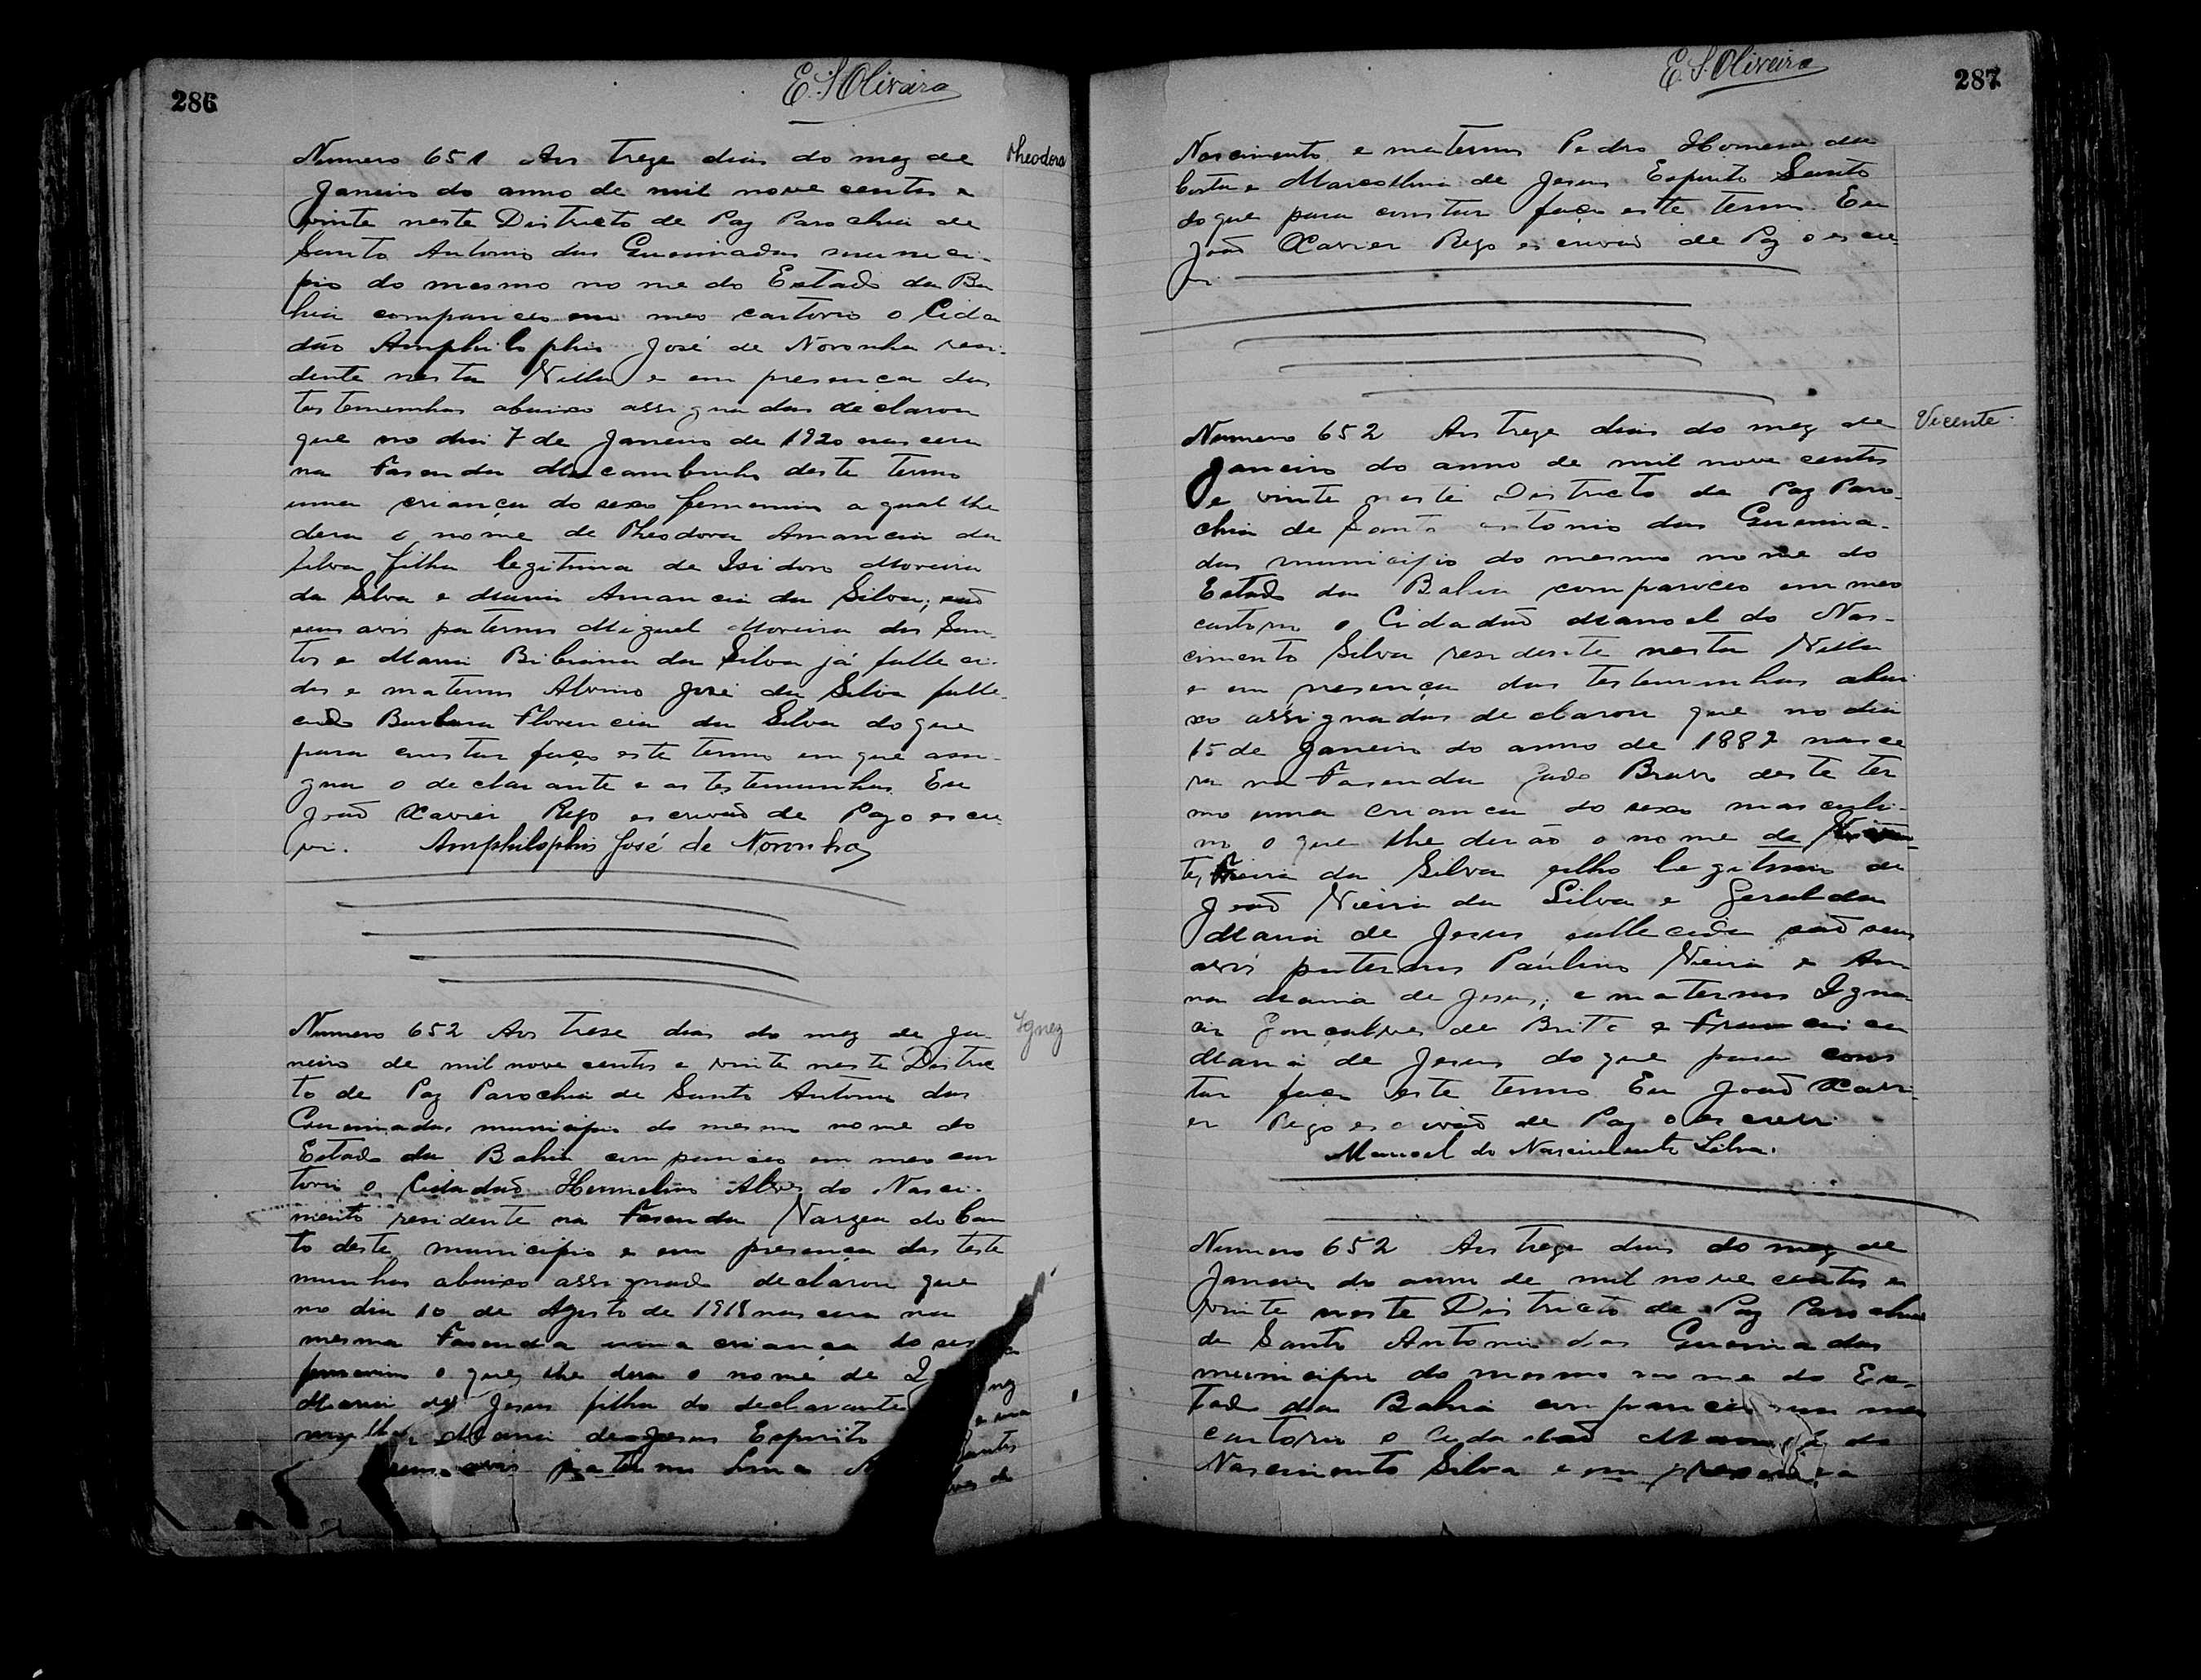 286
E. S. Oliveira
Numero 651 Aos treze dias do mez de
Theodora
Janeiro do anno de mil nove centos e
vinte neste Districto de Paz Parochia de
Santo Antonio das Queimadas munici-
pio do mesmo nome do Estado da Ba
hia compareceo em meo cartorio o Cida
dão Amphilophio José de Noronha resi-
dente nesta Villa e em presença das
testemunhas abaixo assignadas declarou
que no dia 7 de Janeiro de 1920 nascera
na Fasenda Macambinho deste termo
uma criança do sexo femenino a qual lhe
dera o nome de Theodora Amancia da
Silva filha legitima de Isidoro Moreira
da Silva e Maria Amancia da Silva; são
seus avós paternos Miguel Moreira dos San-
tos e Maria Bibiana da Silva já falleci-
dos e maternos Alvino José da Silva falle-
cido Barbara Florencia da Silva do que
para constar faço este termo em que assi-
gna o declarante e as testemunhas. Eu
João Xavier Rego escrivão de Paz o escre-
vi. Amphilophio José de Noronha
Numero 652 Aos trese dias do mez de Ja-
Ignez
neiro de mil nove centos e vinte neste Distric
to de Paz Parochia de Santo Antonio das
Queimadas municipio do mesmo nome do
Estado da Bahia compareceo em meo car
torio o Cidadão Hermelino Alves do Nasci-
mento residente na Fasenda Varzea do Can
to deste municipio e em presença das teste
munhas abaixo assignado declarou que
no dia 10 de Agosto de 1918 nascera na
mesma Fasenda uma criança do
femenino o que lhe dera o nome de
Maria de Jesus filha do declarante e sua
mulher Maria de Jesus Espirito Santo
seus avós paterno
287
E. S. Oliveira
Nascimento e maternos Pedro Homem da
Costa e Marcollina de Jesus Espirito Santo
do que para constar faço este termo. Eu
João Xavier Rego escrivão de Paz o escre-
vi.
Numero 652 Aos treze dias do mez de
Vicente
Janeiro do anno de mil nove centos
e vinte neste Districto de Paz Paro-
chia de Santo Antonio das Queima-
das municipio do mesmo nome do
Estado da Bahia compareceo em meo
cartorio o Cidadão Manoel do Nas-
cimento Silva residente nesta Villa
e em presença das testemunhas abai
xo assignadas declarou que no dia
15 de Janeiro do anno de 1882 nasce
ra na Fasenda Gado Bravo deste ter
mo uma criança do sexo masculi-
no o que lhe derão o nome de
te, Vieira da Silva filho legitimo de
João Vieira da Silva e Geralda
Maria de Jesus fallecida são seus
avós paternos Paulino Vieira e An
na Maria de Jesus; e maternos Igna
cio Gonçalves de Brito e Francisca
Maria de Jesus do que para cons
tar faço este termo Eu João Xavi-
er Rego escrivão de Paz o escrevi
Manoel do Nascimento Silva.
Numero 652 Aos treze dias do mez de
Janeiro do anno de mil nove centos e
vinte neste Districto de Paz Parochia
de Santo Antonio das Queimadas
municipio do mesmo nome do Es-
tado da Bahia compareceo em meo
cartorio o Cidadão Manoel do
Nascimento Silva e em presença